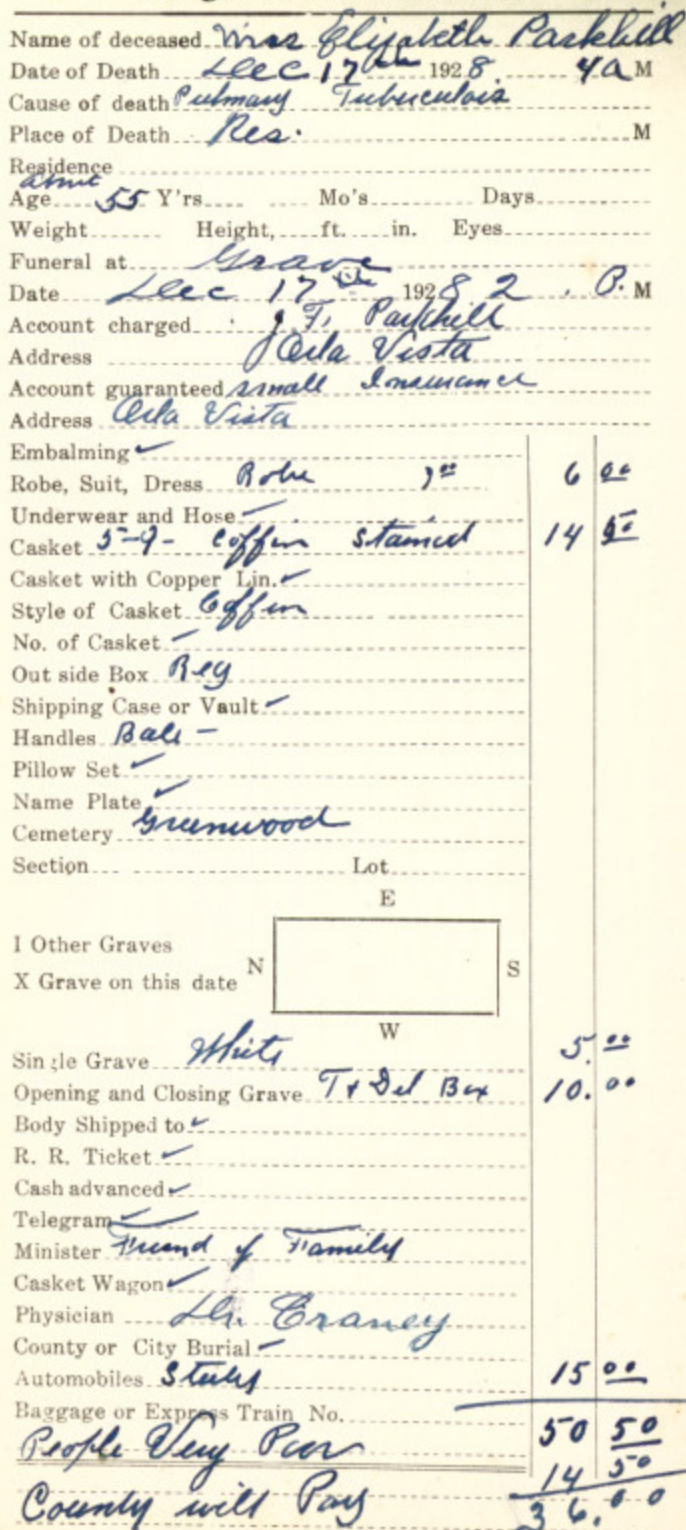 Name of deceased Mrs Elizabeth Parkhill
Date of Death Dec 17th 1928. 4 a M
Cause of death Pulmary Tuberculois
Place of Death Res. M
Residence
about
Age 55 Y'rs Mo's Days
Weight Height, ft. in. Eyes
Funeral at Grave
Date Dec 17th 1928 2 . P. M
Account charged J. F. Parkhill
Address Orla Vista
Account guaranteed small Insurance
Address Orla Vista
Embalming ✓
Robe, Suit, Dress Robe 6 00
Underwear and Hose ✓
Casket 5-9- Coffin Stained 14 50
Casket with Copper Lin. ✓
Style of Casket Coffin
No. of Casket ✓
Out side Box Reg
Shipping Case or Vault ✓
Handles Bale -
Pillow Set ✓
Name Plate ✓
Cemetery Greenwood
Section Lot
E
I Other Graves
X Grave on this date N S
W
Single Grave White 5.00
Opening and Closing Grave T & Del Box 10.00
Body Shipped to ✓
R. R. Ticket ✓
Cash advanced ✓
Telegram ✓
Minister Friend of Family
Casket Wagon ✓
Physician Dr. Craney
County or City Burial ✓
Automobiles 15 00
Baggage or Express Train No.
People Very Poor 50 50
14 50
County will Pay 36.00